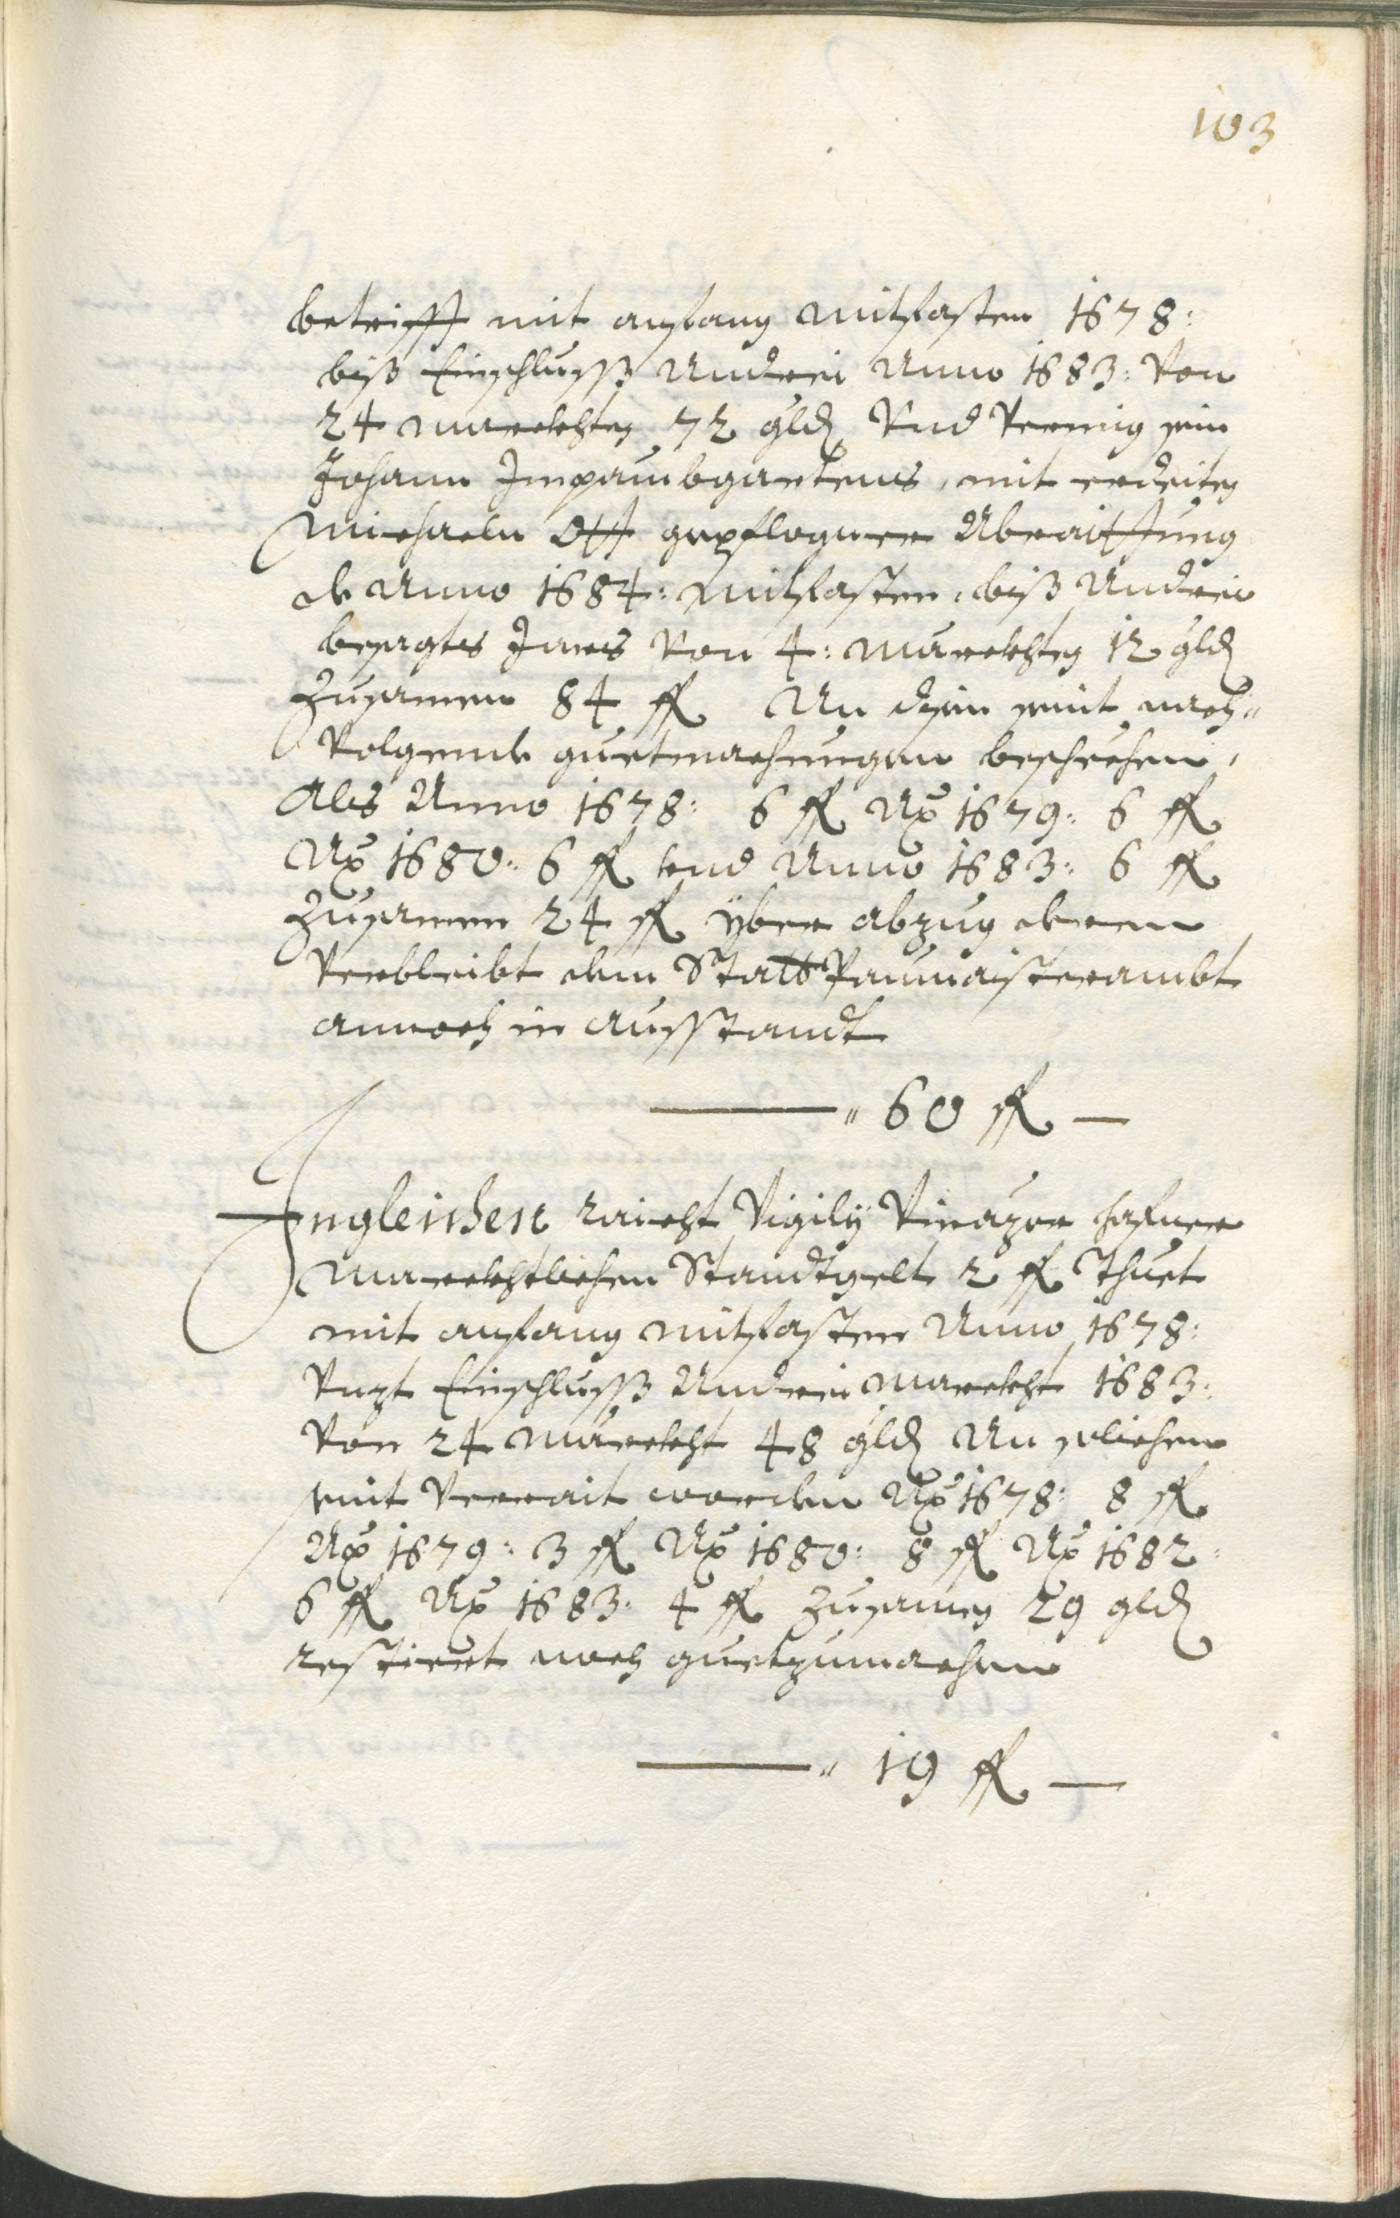 103
betrifft mit anfang mitfasten 1678:
biß Einschlusß Andrei Anno 1683: Von
24 märckhten 72 gld Vnd Vermig sein
Johann Impaumbgartens, mit erdeiten
Michaeln Ott gepflogner Abraittung
de Anno 1684: mitfasten, biß Andrei
besagts Jars Von 4: märckhten 12 gld
Zusamen 84 fl An disen seint nach-
Volgende guetmachungen beschechen,
Als Anno 1678: 6 fl Ao 1679: 6 fl
Ao 1680: 6 fl und Anno 1683: 6 fl
Zusamen 24 fl yber abzug deren
Verbleibt dem Statt Paumaisterambt
annoch in ausstandt
60 fl
Ingleichen raicht Vigily hafner
märckhtlichen Standtgelt 2 fl Thuet
mit anfang mitfasten Anno 1678:
Vnzt Einschlusß Andrei märckht 1683:
Von 24 märckht 48 gld An solichen
seint Verrait worden Ao 1678: 8 fl
Ao 1679: 3 fl Ao 1680: 8 fl Ao 1682:
6 fl Ao 1683: 4 fl Zusamen 29 gld
restiert noch guetzumachen
19 fl